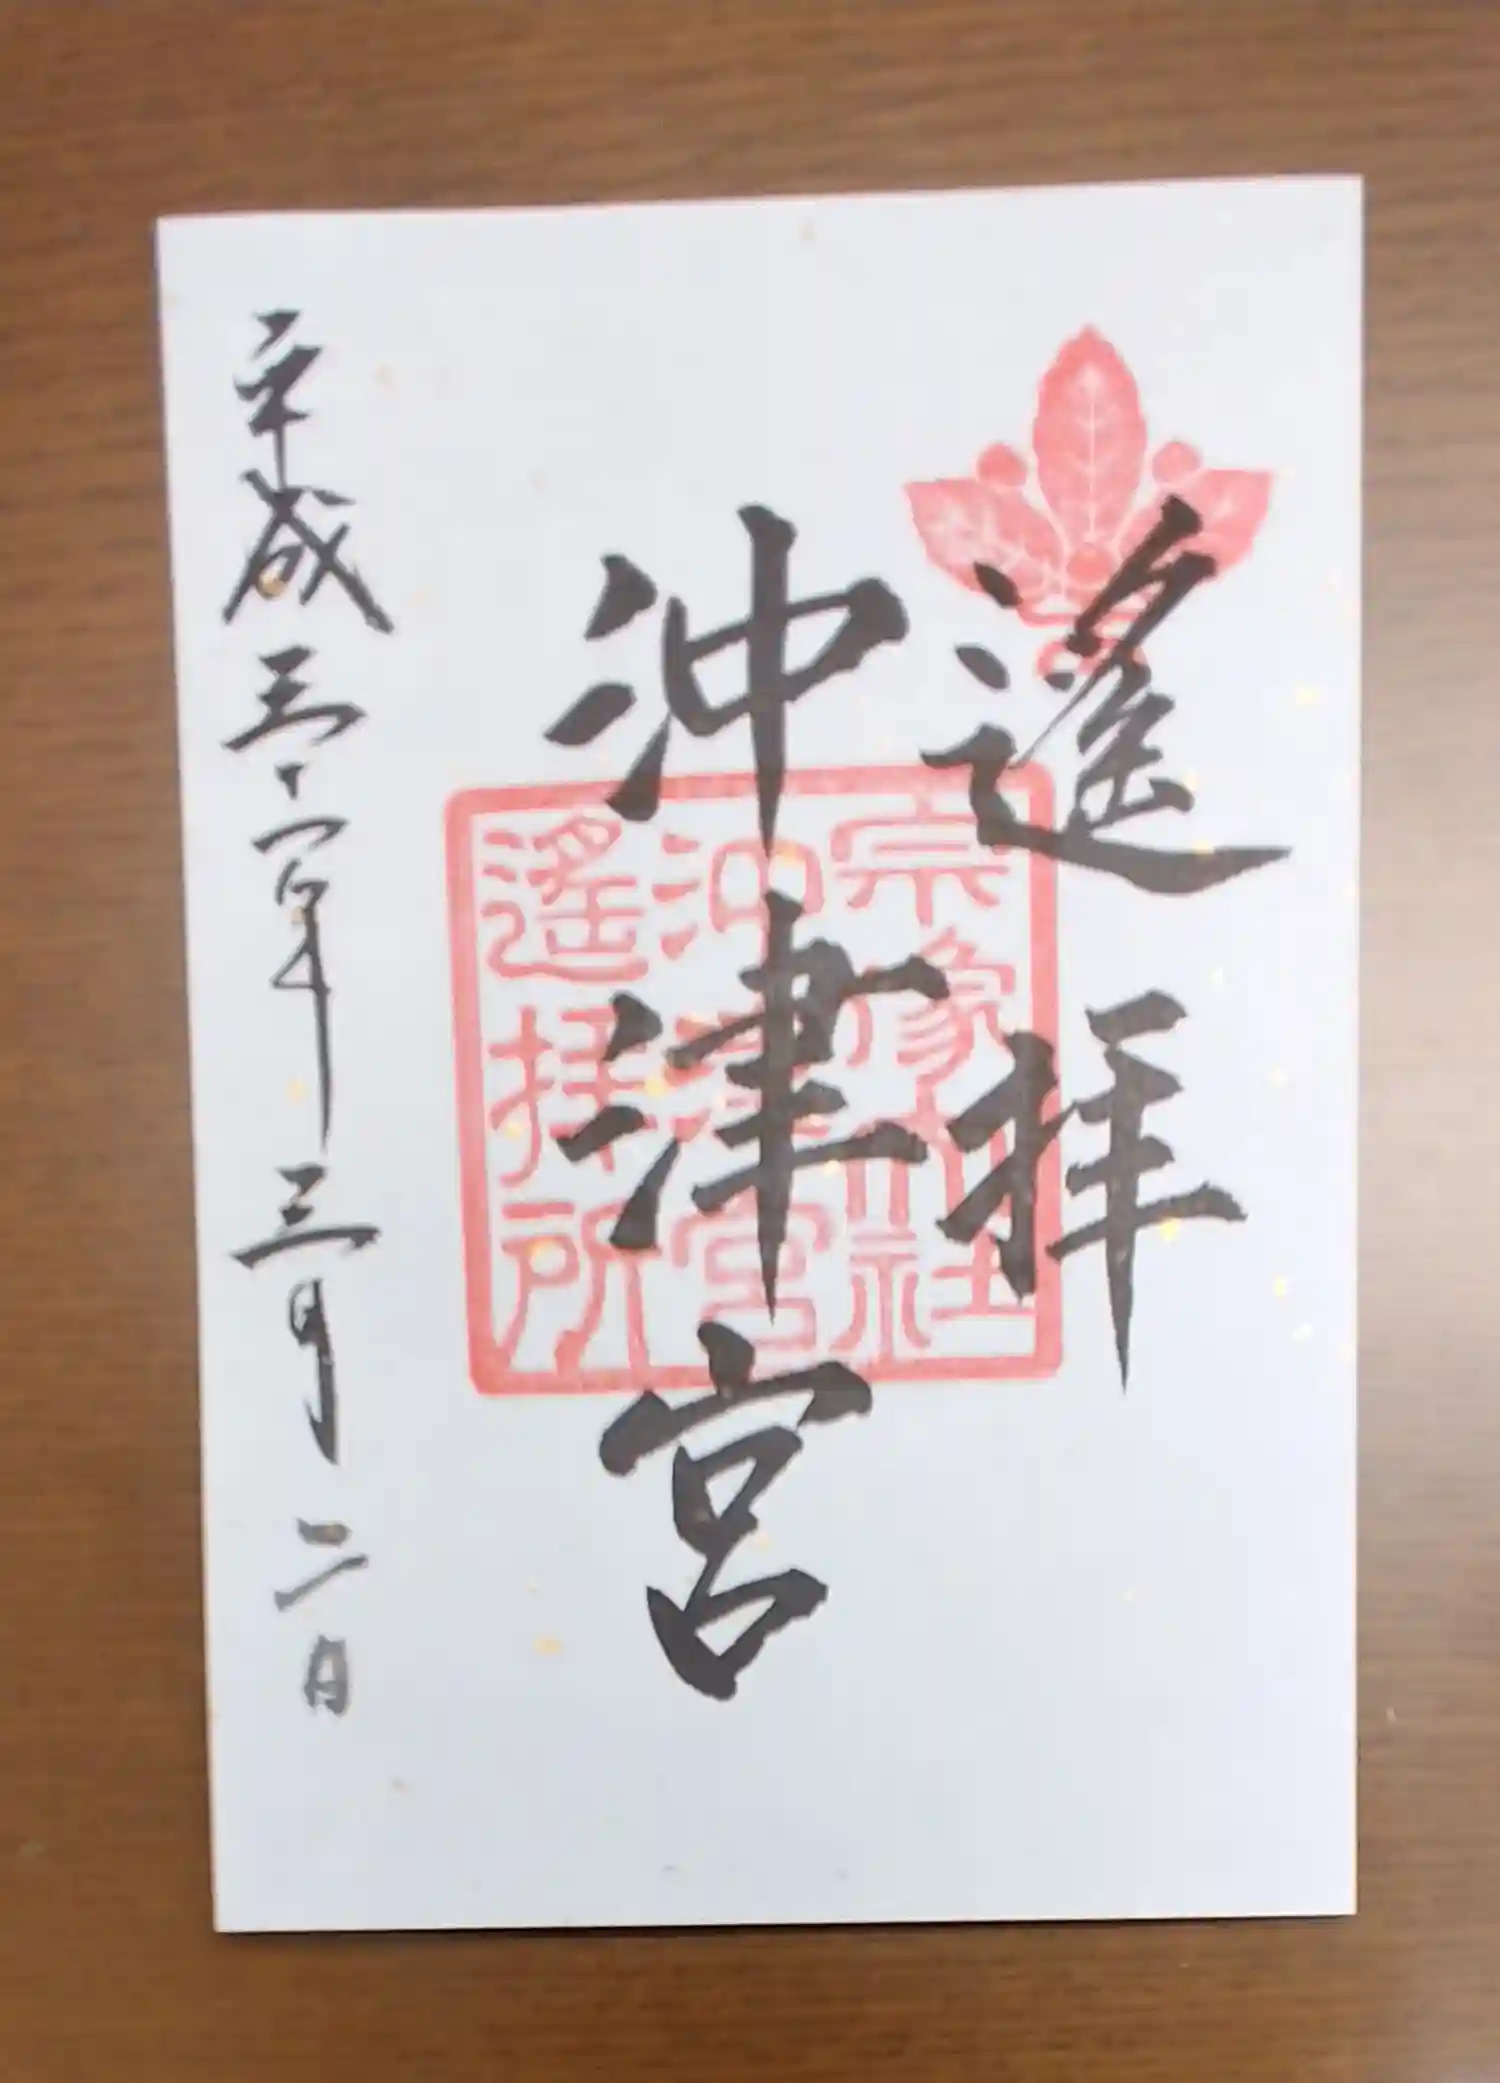 遙拝
沖津宮
平成三十一年三月二日
宗像大社
沖津宮
遙拝所